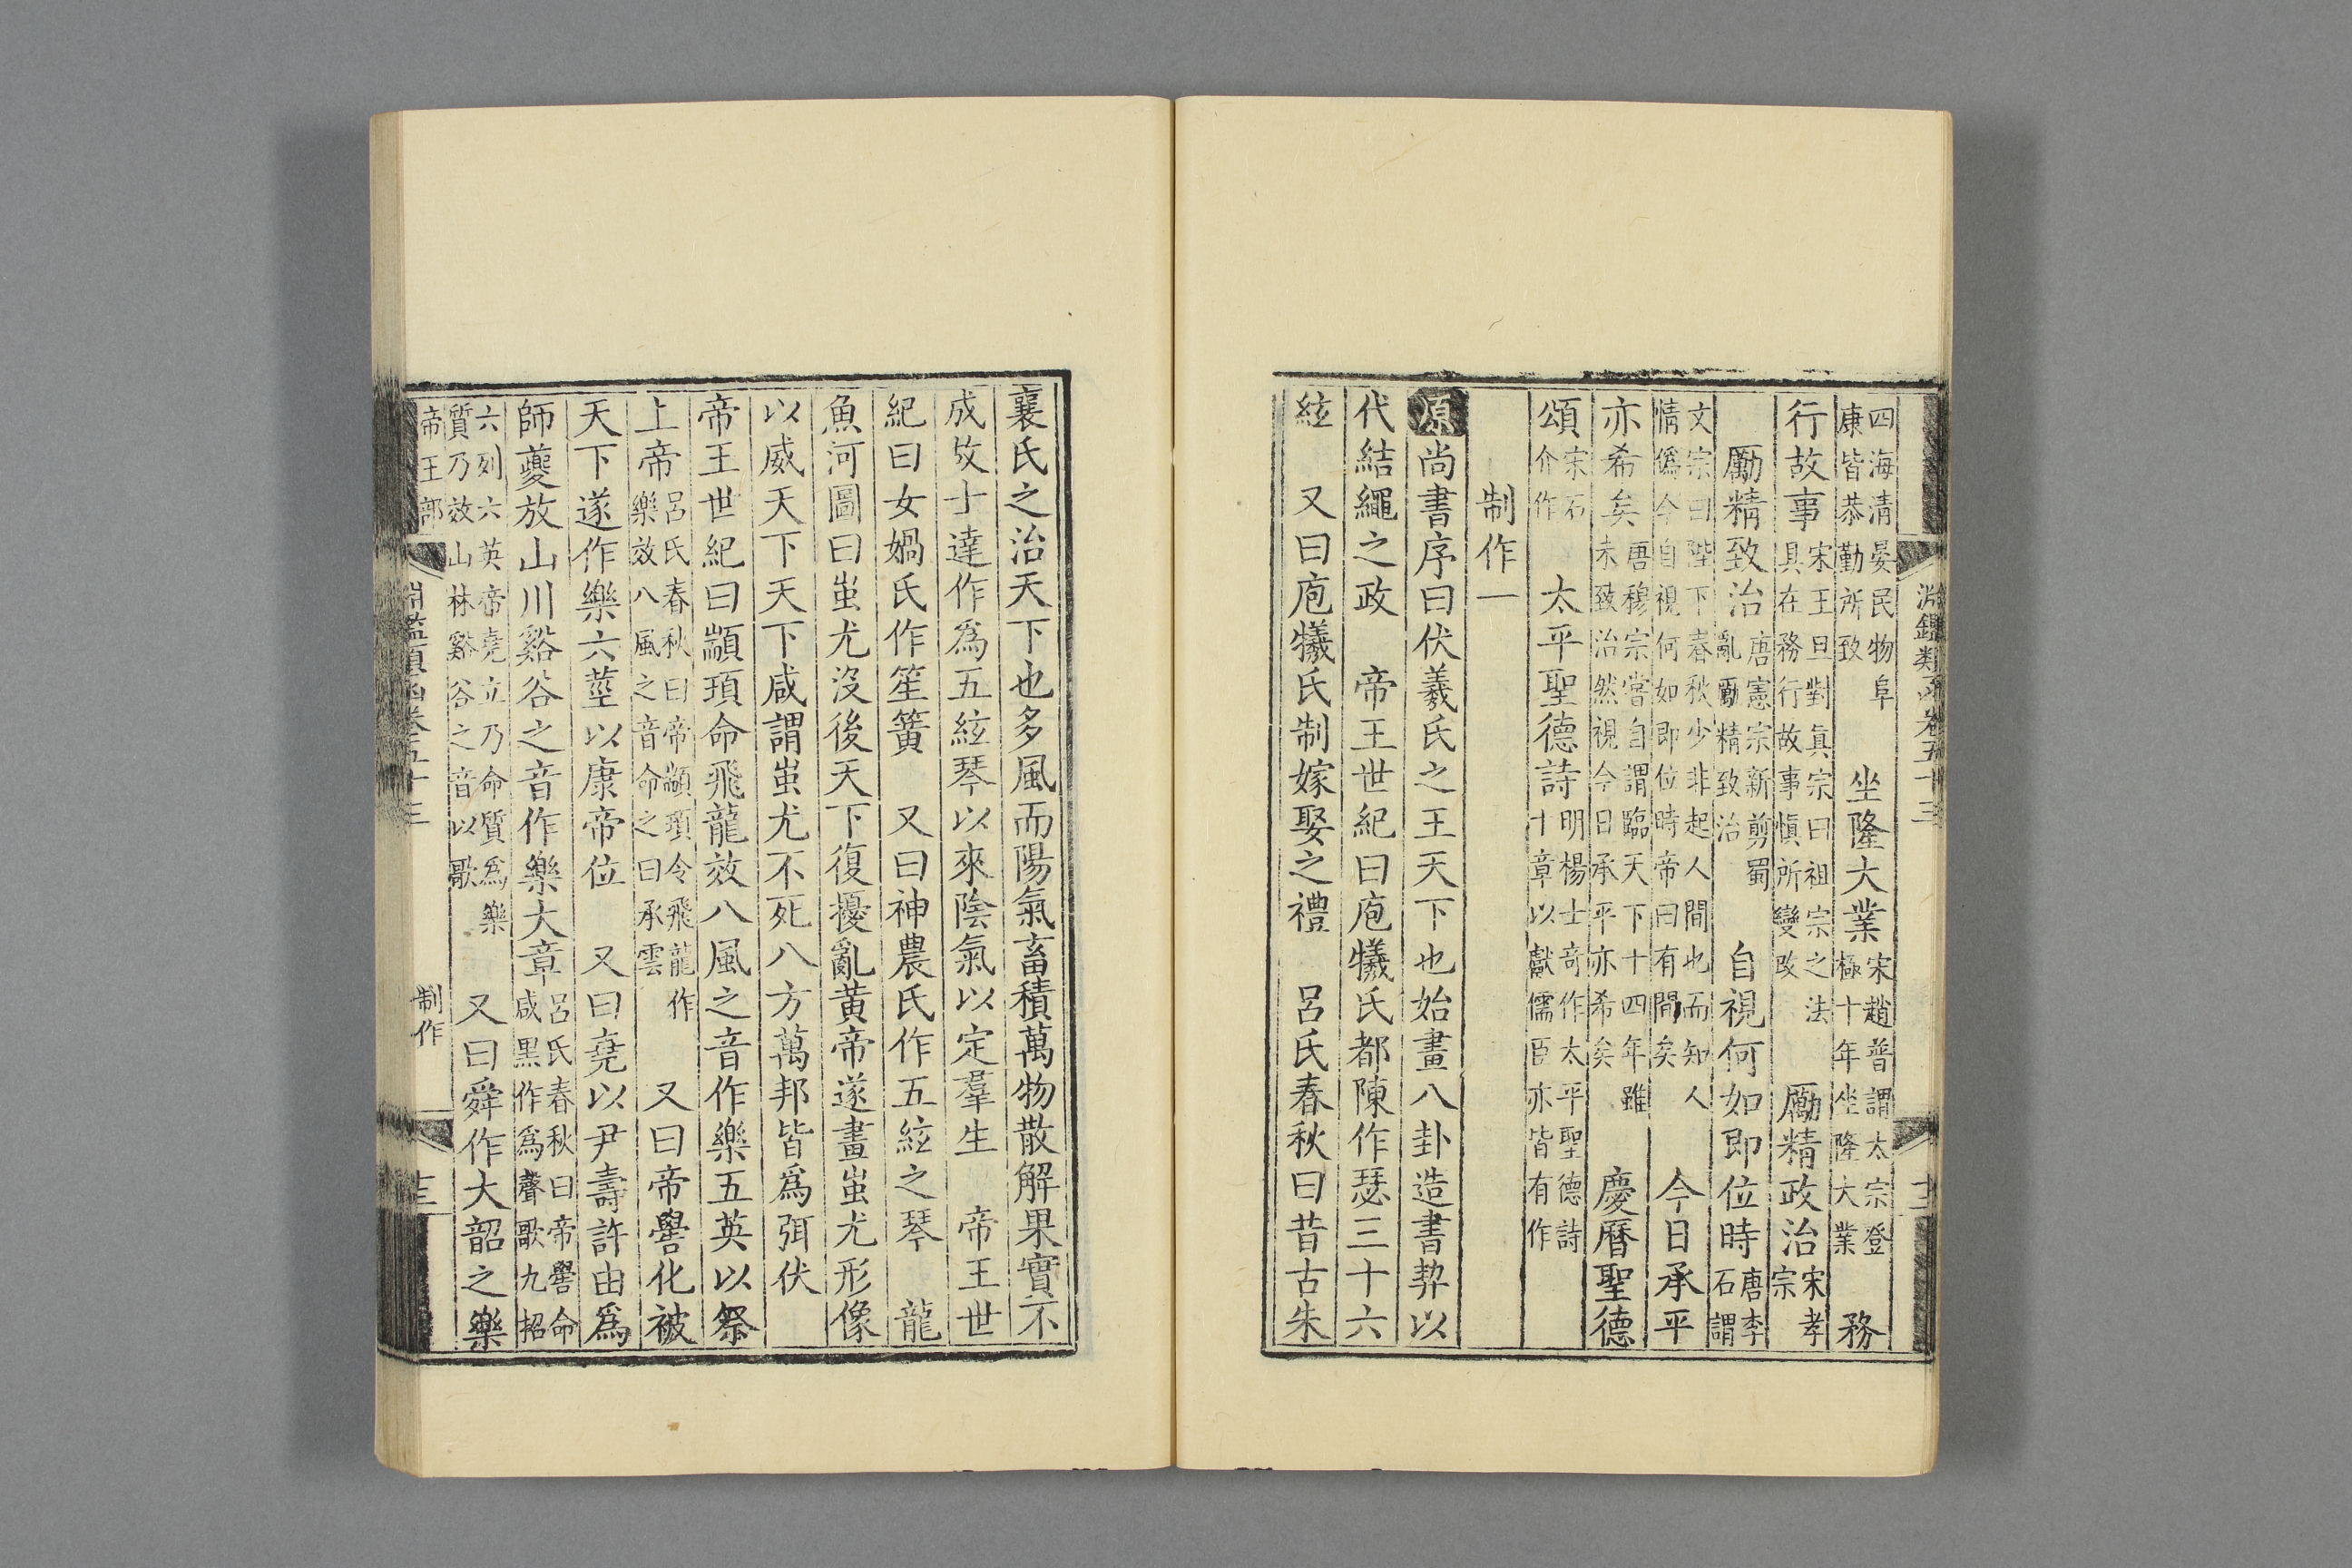 淵鑑類函卷五十三
四海清晏民物阜
康皆恭勤所致
坐隆大業
宋趙普謂太宗登
極十年坐隆大業
務
行故事
宋王旦對真宗曰祖宗之法
具在務行故事愼所變改
勵精政治
宋孝
宗
勵精致治
唐憲宗新剪蜀
亂勵精致治
自視何如即位時
唐李
石謂
文宗曰陛下春秋少非起人間也而知人
情僞今自視何如即位時帝曰有間矣
今日承平
亦希矣
唐穆宗嘗自謂臨天下十四年雖
未致治然視今日承平亦希矣
慶曆聖德
頌
宋石
介作
太平聖德詩
明楊士奇作太平聖德詩
十章以獻儒臣亦皆有作
制作一
原尚書序曰伏羲氏之王天下也始畫八卦造書契以
代結繩之政 帝王世紀曰庖犧氏都陳作瑟三十六
絃 又曰庖犧氏制嫁娶之禮 呂氏春秋曰昔古朱
襄氏之治天下也多風而陽氣畜積萬物散解果實不
成故士達作爲五絃琴以來陰氣以定羣生 帝王世
紀曰女媧氏作笙簧 又曰神農氏作五絃之琴 龍
魚河圖曰蚩尤沒後天下復擾亂黃帝遂畫蚩尤形像
以威天下天下咸謂蚩尤不死八方萬邦皆爲弭伏
帝王世紀曰顓頊命飛龍效八風之音作樂五英以祭
上帝
呂氏春秋曰帝顓頊令飛龍作
樂效八風之音命之曰承雲
又曰帝嚳化被
天下遂作樂六莖以康帝位 又曰堯以尹壽許由爲
師夔放山川谿谷之音作樂大章
呂氏春秋曰帝嚳命
咸黑作爲聲歌九招
六列六英帝堯立乃命質爲樂
質乃效山林谿谷之音以歌
又曰舜作大韶之樂
帝王部
淵鑑類函卷五十三
制作